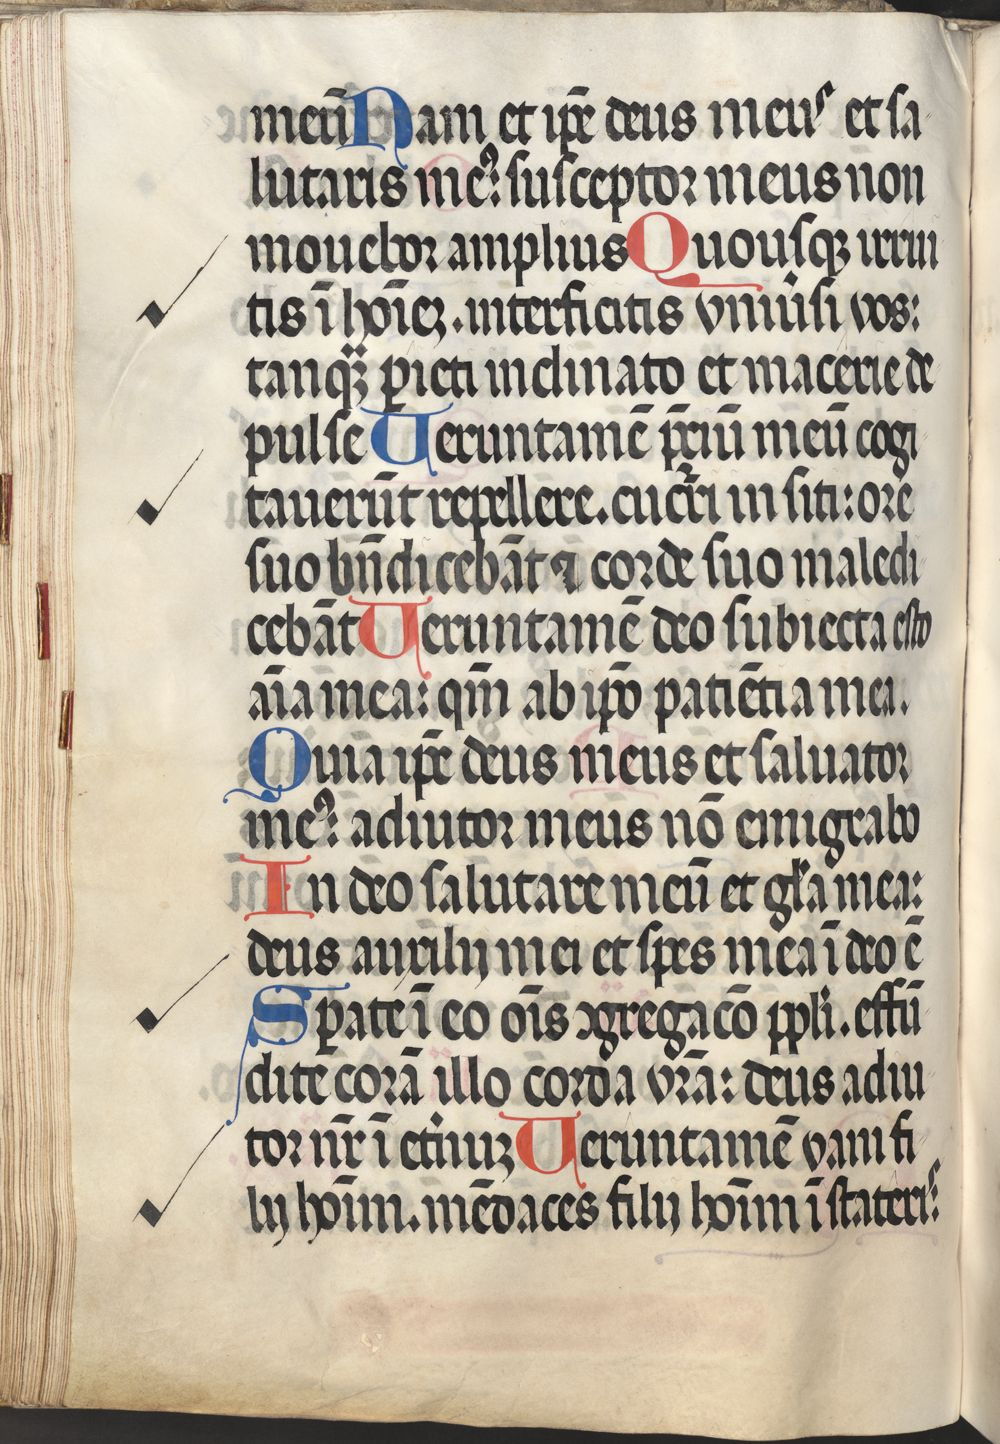 meū Nam et ip̄e deus meuˢ et sa
lutaris meꝰ: susceptor meus non
mouebor amplius Quousqꝫ irrui
tis ī hoīeꝫ. interficitis vniūsi vos:
tanqꝫ parieti inclinato et macerie de
pulse Ueruntamē p̄ciū meū cogi
tauerūt repellere. cucr̄ri in siti: ore
suo bn̄dicebāt ⁊ corde suo maledi
cebāt Ueruntamē deo subiecta esto
aīa mea: qm̄ ab ip̄o patiētia mea.
Quia ip̄e deus meus et saluator
meꝰ: adiutor meus nō emigrabo
In deo salutare meū et gl̄a mea:
deus auxilij mei et spes mea ī deo ē
Sꝑate ī eo oīs ꝯgregacō pp̄li. effū
dite corā illo corda vr̄a: deus adiu
tor nr̄ ī et̄nuꝫ Ueruntamē vani fi
lij hoīm. mēdaces filij hoīm ī stateriˢ: